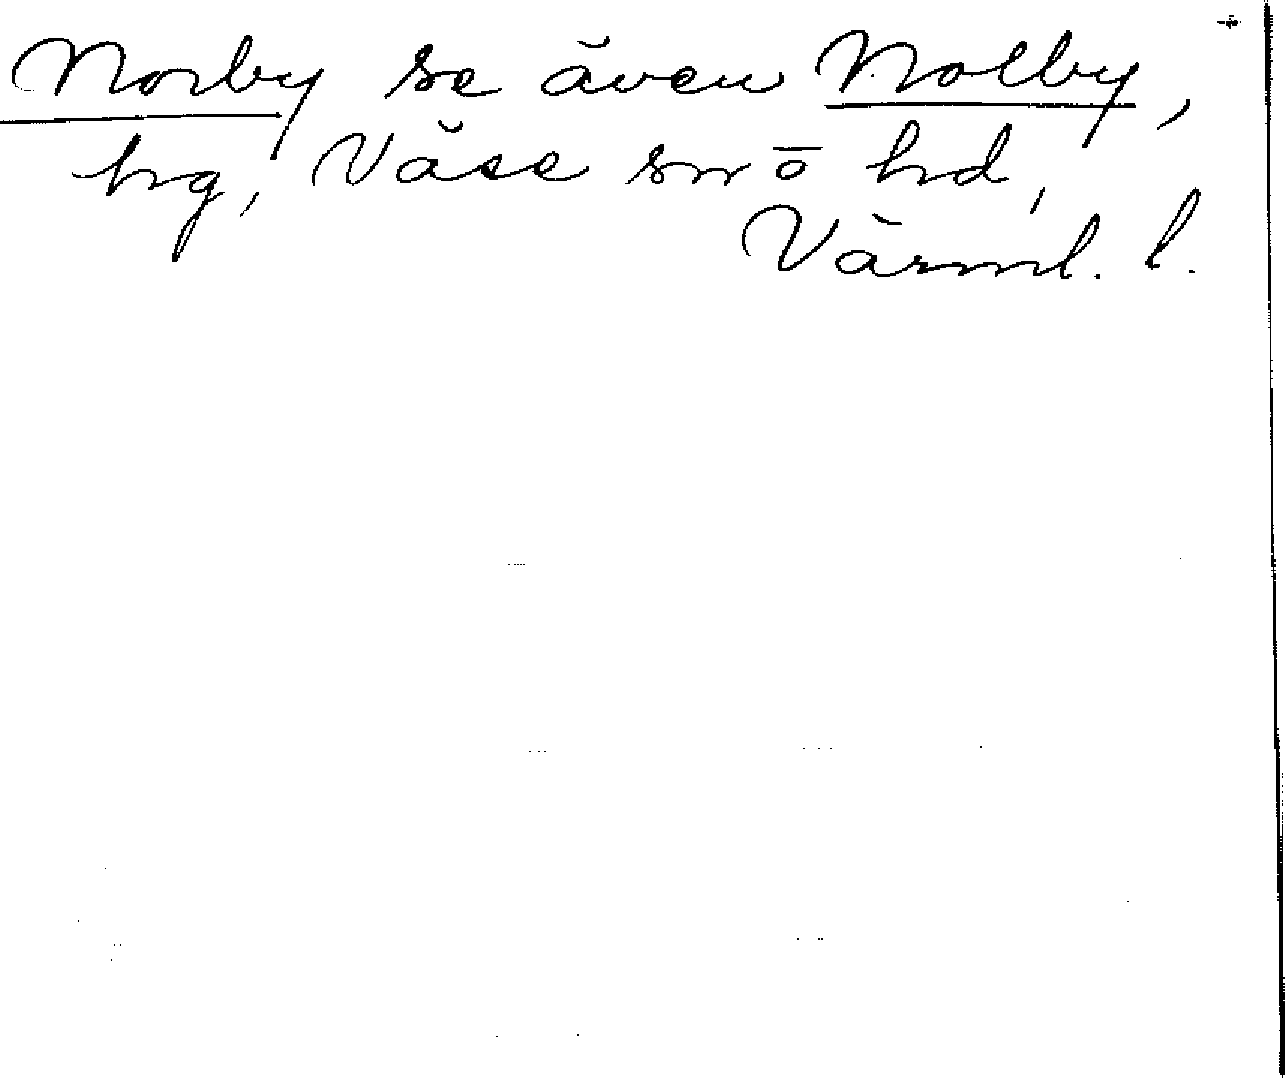 Norby se även Nolby,
hg, Väse sn ō hd,
Värml. l.